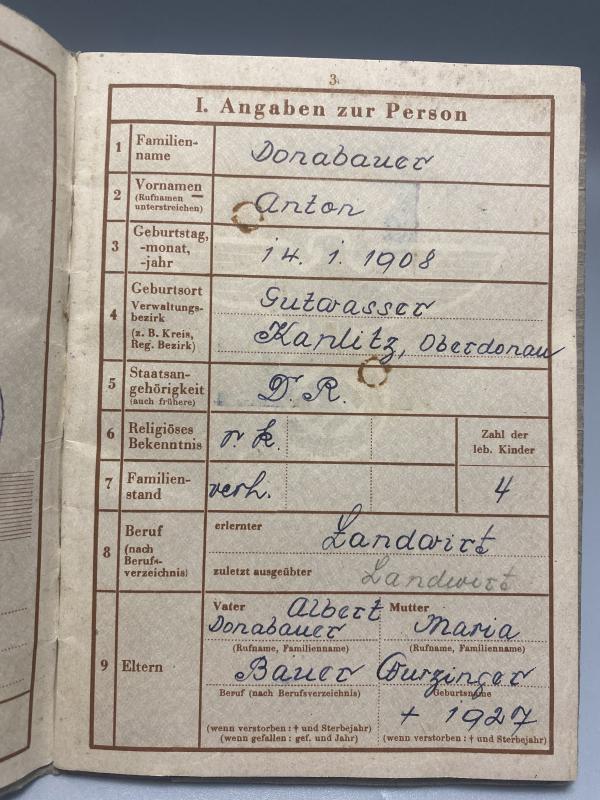 3
I. Angaben zur Person
1 Familien-
name
Donabauer
2 Vornamen
(Rufnamen
unterstreichen)
Anton
3 Geburtstag,
-monat,
-jahr
14. 1. 1908
4 Geburtsort
Verwaltungs-
bezirk
(z. B. Kreis,
Reg. Bezirk)
Gutwasser
Kanlitz, Oberdonau
5 Staatsan-
gehörigkeit
(auch frühere)
D. R.
6 Religiöses
Bekenntnis
r. k.
Zahl der
leb. Kinder
7 Familien-
stand
verh.
4
8 Beruf
(nach
Berufs-
verzeichnis)
erlernter
Landwirt
zuletzt ausgeübter
Landwirt
9 Eltern
Vater Albert
Donabauer
(Rufname, Familienname)
Bauer
Beruf (nach Berufsverzeichnis)
(wenn verstorben: † und Sterbejahr)
(wenn gefallen: gef. und Jahr)
Mutter
Maria
(Rufname, Familienname)
Gurzinger
Geburtsname
+ 1927
(wenn verstorben: † und Sterbejahr)